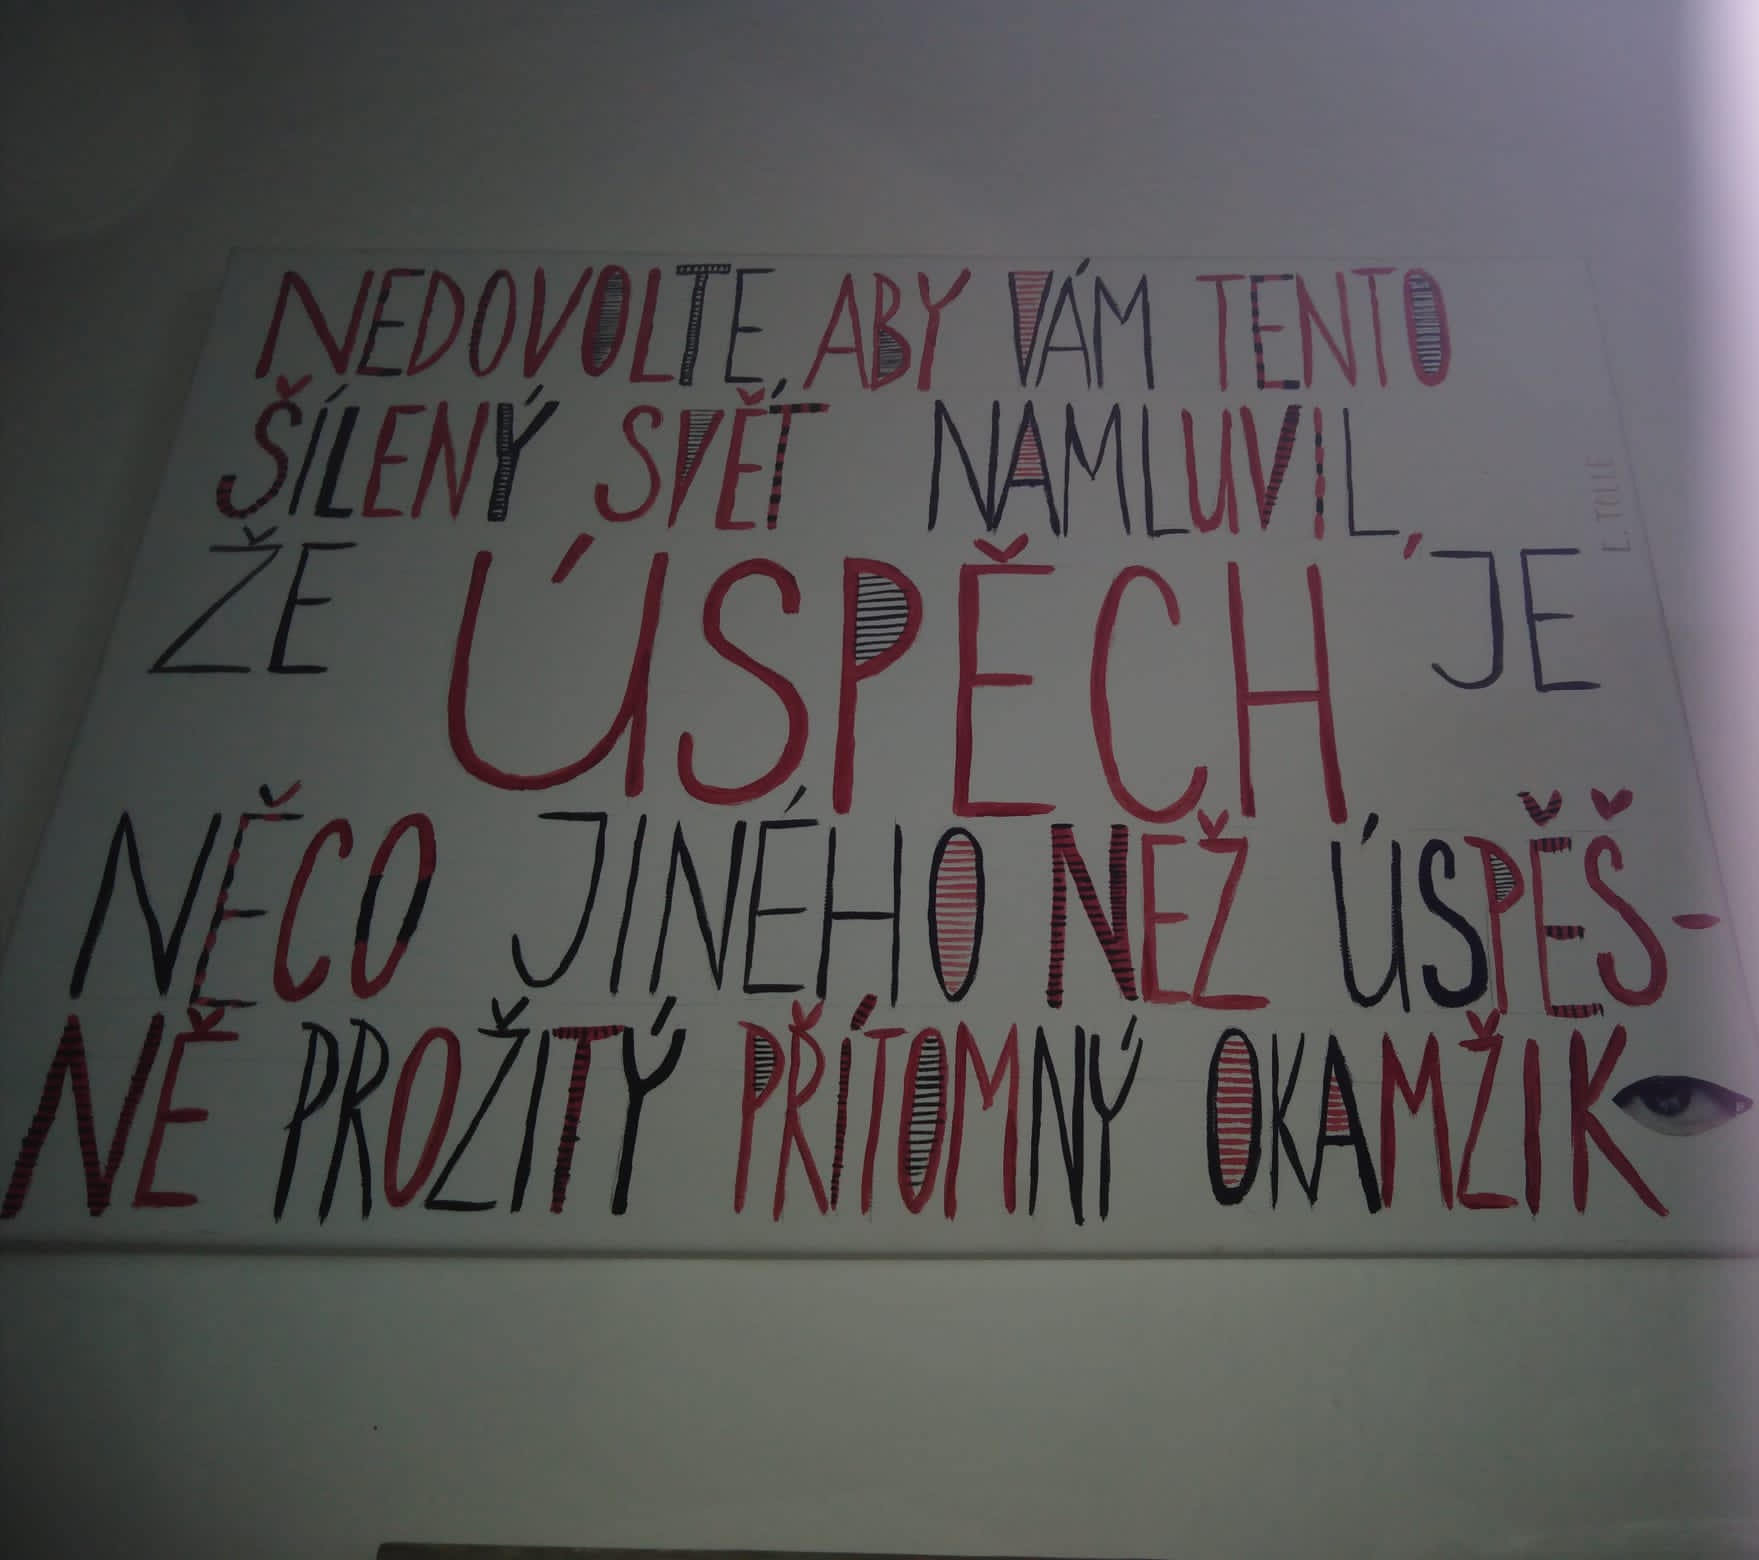 NEDOVOLTE, ABY VÁM TENTO
ŠÍLENÝ SVĚT NAMLUVIL,
ŽE ÚSPĚCH JE
NĚCO JINÉHO NEŽ ÚSPĚŠ-
NĚ PROŽITÝ PŘÍTOMNÝ OKAMŽIK
E. TOLLE